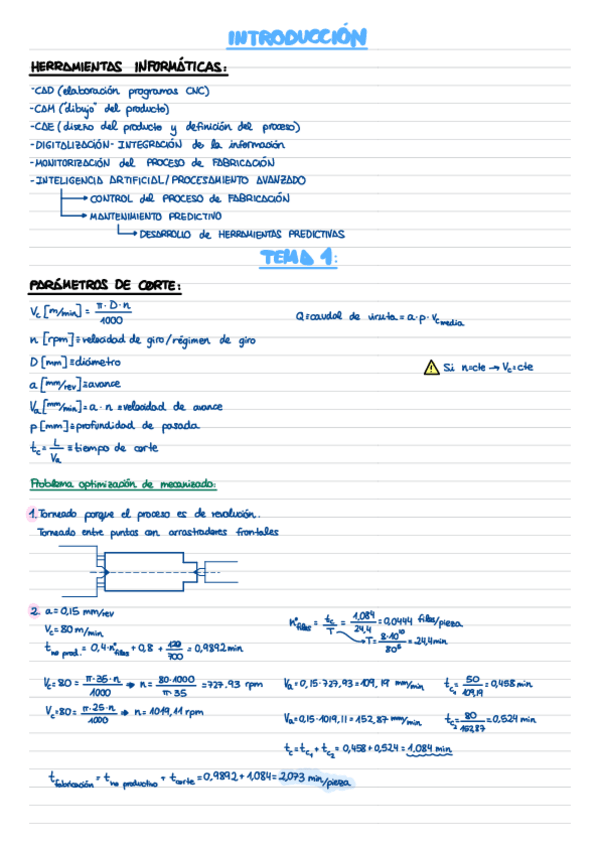 INTRODUCCIÓN
HERRAMIENTAS INFORMÁTICAS:
-CAD (elaboración programas CNC)
-CAM ("dibujo" del producto)
-CAE (diseño del producto y definición del proceso)
-DIGITALIZACIÓN- INTEGRACIÓN de la información
-MONITORIZACIÓN del PROCESO de FABRICACIÓN
-INTELIGENCIA ARTIFICIAL/PROCESAMIENTO AVANZADO
→ CONTROL del PROCESO de FABRICACIÓN
→ MANTENIMIENTO PREDICTIVO
→ DESARROLLO de HERRAMIENTAS PREDICTIVAS
TEMA 1:
PARÁMETROS DE CORTE:
Vc [m/min] = π·D·n / 1000
Q≡caudal de viruta = a·p·Vc media
n [rpm] ≡ velocidad de giro/régimen de giro
D [mm] ≡ diámetro
⚠ Si n=cte → Vc=cte
a [mm/rev] ≡ avance
Va [mm/min] = a·n ≡ velocidad de avance
p [mm] ≡ profundidad de pasada
tc = L / Va ≡ tiempo de corte
Problema optimización de mecanizado:
1. Torneado porque el proceso es de revolución.
Torneado entre puntos con arrastradores frontales
2. a = 0,15 mm/rev
Vc = 80 m/min
nº filos = tc / T = 1,084 / 24,4 = 0,0444 filos/pieza
→ T = 8·10¹⁰ / 80⁵ = 24,4 min
t no prod. = 0,4·nº filos + 0,8 + 120 / 700 = 0,9892 min
Vc = 80 = π·35·n / 1000 ⇒ n = 80·1000 / π·35 = 727,93 rpm
Va = 0,15·727,93 = 109,19 mm/min
tc1 = 50 / 109,19 = 0,458 min
Vc = 80 = π·25·n / 1000 ⇒ n = 1019,11 rpm
Va = 0,15·1019,11 = 152,87 mm/min
tc2 = 80 / 152,87 = 0,524 min
tc = tc1 + tc2 = 0,458 + 0,524 = 1,084 min
t fabricación = t no productivo + t corte = 0,9892 + 1,084 = 2,073 min/pieza